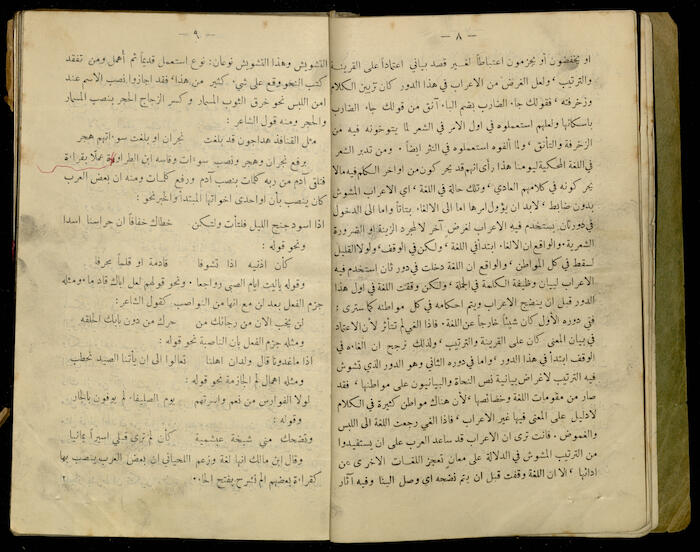 — ٨ —
او يخفضون أو يجزمون اعتباطاً لغير قصد بياني اعتماداً على القرينة
والترتيب ، ولعل الغرض من الاعراب في هذا الدور كان تزيين الكلام
وزخرفته ، فقولك جاء الضارب بضم الباء آنق من قولك جاء الضارب
باسكانها ولعلهم استعملوه في اول الامر في الشعر لما يتوخونه فيه من
الزخرفة والتأنق ، ولما ألفوه استعملوه في النثر ايضاً . ومن تدبر الشعر
في اللغة المحكية ليومنا هذا رأى انهم قد يحركون من اواخر الكلم فيه مالا
يحركونه في كلامهم العادي ، وتلك حالة في اللغة ، اي الاعراب المشوش
بدون ضابط ، لابد ان يؤول امرها اما الى الالغاء بتاتاً واما الى الدخول
في دور ثان يستخدم فيه الاعراب لغرض آخر لا لمجرد الزينة او الضرورة
الشعرية . والواقع ان الالغاء ابتدأ في اللغة ، ولكن في الوقف ، ولولا القليل
لسقط في كل المواطن ، والواقع ان اللغة دخلت في دور ثان استخدم فيه
الاعراب لبيان وظيفة الكلمة في الجملة ، ولكن وقفت اللغة في اول هذا
الدور قبل ان ينضج الاعراب ويتم احكامه في كل مواطنه كما سترى :
ففي دوره الأول كان شيئاً خارجاً عن اللغة . فاذا الغي لم تتأثر لأن الاعتماد
في بيان المعنى كان على القرينة والترتيب ، ولذلك نرجح ان الغاءه في
الوقف ابتدأ في هذا الدور ، واما في دوره الثاني وهو الدور الذي تشوش
فيه الترتيب لاغراض بيانية نص النحاة والبيانيون على مواطنها ، فقد
صار من مقومات اللغة وخصائصها ، لأن هناك مواطن كثيرة في الكلام
لا دليل على المعنى فيها غير الاعراب ، فاذا الغي رجعت اللغة الى اللبس
والغموض . فانت ترى ان الاعراب قد ساعد العرب على ان يستفيدوا
من الترتيب المشوش في الدلالة على معان تعجز اللغات الاخرى عن
ادائها ، الا ان اللغة وقفت قبل ان يتم نضجه اي وصل الينا وفيه آثار
— ٩ —
التشويش وهذا التشويش نوعان : نوع استعمل قديماً ثم أهمل ومن تفقد
كتب النحو وقع على شيء كثير من هذا ، فقد اجازوا نصب الاسم عند
امن اللبس نحو خرق الثوب المسمار وكسر الزجاج الحجر بنصب المسمار
والحجر ومنه قول الشاعر :
مثل القنافذ هداجون قد بلغت نجران او بلغت سوءاتهم هجر
برفع نجران وهجر ونصب سوءات وقاسه ابن الطراوة عملاً بقراءة
فتلقى آدم من ربه كلمات بنصب آدم ورفع كلمات ومنه ان بعض العرب
كان ينصب بأن او احدى اخواتها المبتدأ والخبر نحو :
اذا اسود جنح الليل فلتأت ولتكن خطاك خفافاً ان حراسنا اسدا
ونحو قوله :
كأن أذنيه اذا تشوفا قادمة او قلماً محرفا
وقوله ياليت ايام الصبى رواجعا . ونحو قولهم لعل اباك قادما ، ومثله
جزم الفعل بعد لن مع انها من النواصب كقول الشاعر :
لن يخب الآن من رجائك من حرك من دون بابك الحلقه
ومثله جزم الفعل بأن الناصبة نحو قوله :
اذا ماغدونا قال ولدان اهلنا تعالوا الى ان يأتنا الصيد نحطب
ومثله اهمال لم الجازمة نحو قوله :
لولا الفوارس من نعم واسرتهم يوم الصليفاء لم يوفون بالجار
وقوله :
وتضحك مني شيخة عبشمية كأن لم ترى قبلي اسيراً يمانيا
وقال ابن مالك انها لغة وزعم اللحياني ان بعض العرب ينصب بها
كقراءة بعضهم الم نشرح بفتح الحاء .
٢